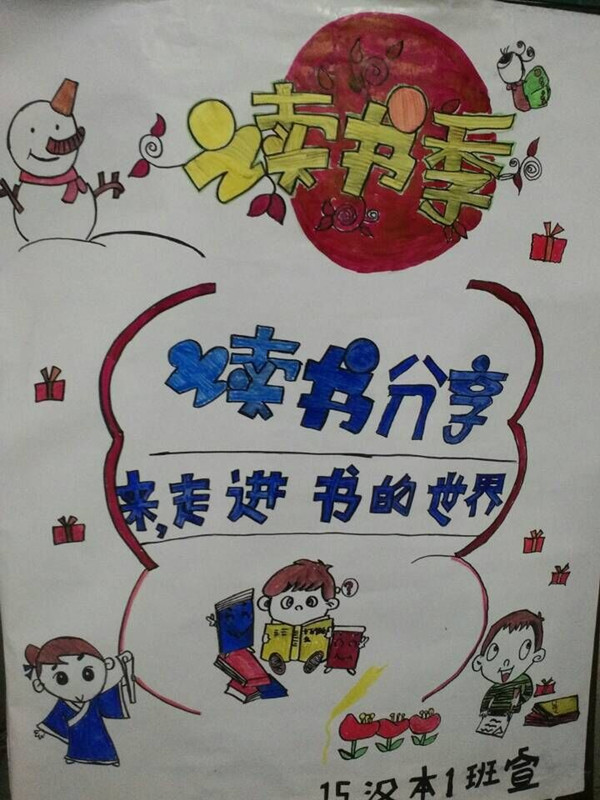 读书季
读书分享
来,走进 书的世界
?
15汉本1班宣